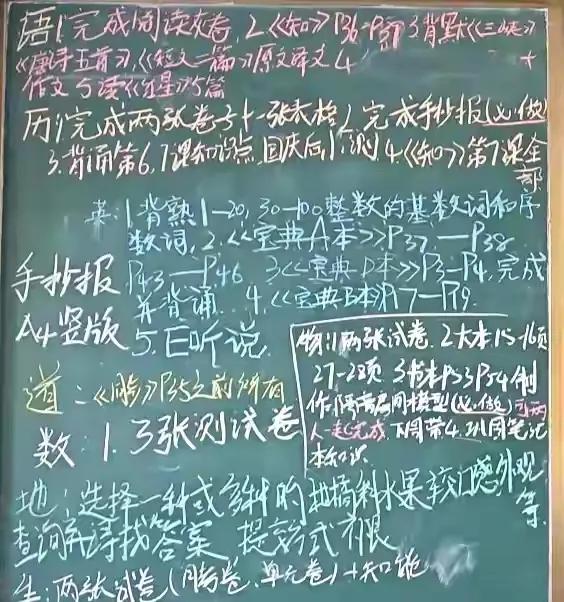 语:1.完成阅读试卷,2.《知》P36-P37 3.背默《三峡》
《唐诗五首》,《短文二篇》原文译文4.
作文 5.读《红星》5篇
历1.完成两张卷子+一张表格 2.完成手抄报(必做)
3.背诵第6.7课知识点,国庆后1测 4.《知》第7课全部
英:1.背熟1-20,30-100整数的基数词和序
数词,2.《宝典A本》P37—P38
P43—P46 3《宝典D本》P3-P4.完成
并背诵 4.《宝典B本》P17-P19.
5.E听说
手抄报
A4竖版
物:1.两张试卷.2大本15-16页
27-28页 3书本P53P54制
作隔音房间模型(必做)可两
人一起完成.下周带4.
本知识
道:《 》P35之前所有
数:1.3张测试卷
地:选择一种或多种的 水果 外观等
查询并寻找答案 形式不限
生:两张试卷(周考卷.单元卷)+知能